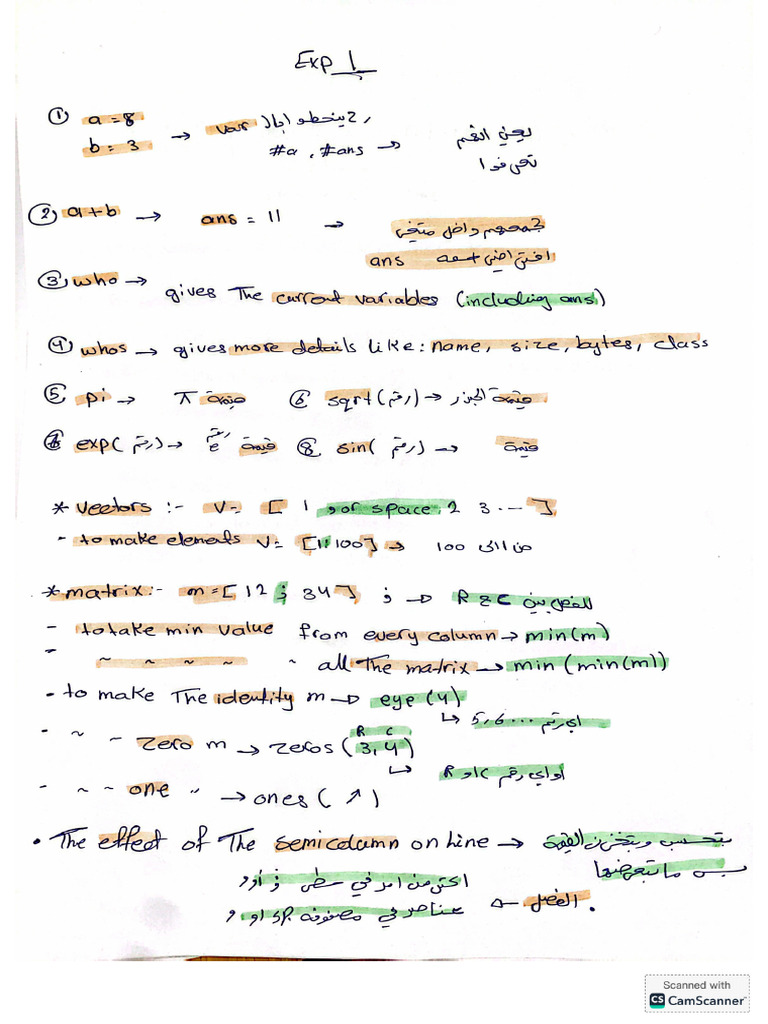 Exp 1
① a = 8 → رح ينحطوا بالـ var يعني القيم
b = 3 #a , #ans → تعرفوا
② a+b → ans = 11 → جمعهم داخل متغير
افتراضي اسمه ans
③ who → gives The current variables (including ans)
④ whos → gives more details like: name, size, bytes, class
⑤ pi → قيمة π ⑥ sqrt(رقم) → قيمة الجذر
⑦ exp(رقم) → قيمة e^رقم ⑧ sin(رقم) → قيمة
* Vectors :- V= [ 1 , or space 2 3 ... ]
- to make elements V= [1:100] → من 1 الى 100
* matrix:- m=[ 12 ; 34 ] ; → للفصل بين R & C
- to take min value from every column → min(m)
- ~ ~ ~ ~ ~ all The matrix → min (min(m))
- to make The identity m → eye (4)
↳ اي رقم 5,6...
R C
- ~ ~ zero m → zeros (3,4)
↳ او اي رقم R و C
- ~ ~ one " → ones ( ↗ )
• The effect of The semicolumn on line → بتحسب وبتخزن القيمة
بس ما بتعرضها
اكثر من امر في سطر ; أو ,
عناصر في مصفوفة SP او , → الفصل.
Scanned with
CS CamScanner